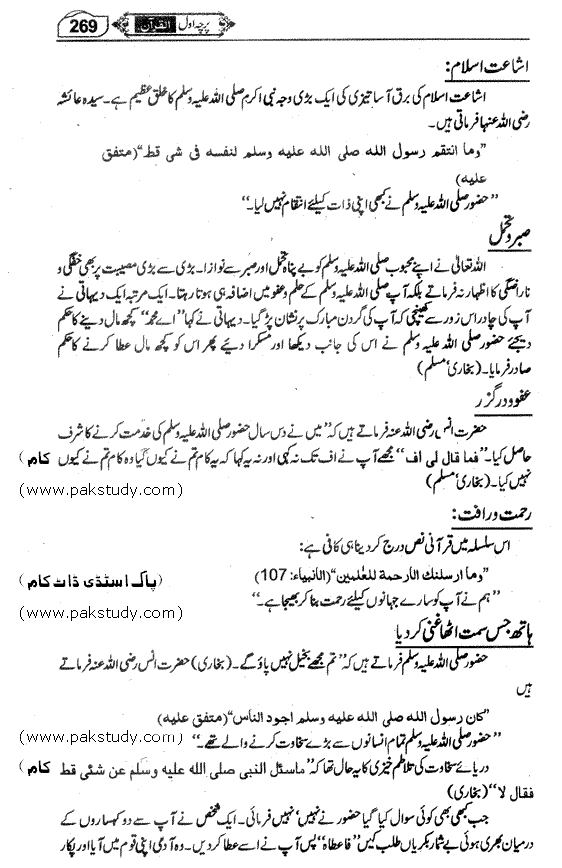 269 القرآن پرچہ اول
اشاعت اسلام:
اشاعت اسلام کی برق آسا تیزی کی ایک بڑی وجہ نبی اکرم صلی اللہ علیہ وسلم کا خلق عظیم ہے۔ سیدہ عائشہ
رضی اللہ عنہا فرماتی ہیں۔
"وما انتقم رسول الله صلى الله عليه وسلم لنفسه فى شى قط" (متفق
عليه)
"حضور صلی اللہ علیہ وسلم نے کبھی اپنی ذات کیلئے انتقام نہیں لیا۔"
صبر و تحمل
اللہ تعالیٰ نے اپنے محبوب صلی اللہ علیہ وسلم کو بے پناہ تحمل اور صبر سے نوازا۔ بڑی سے بڑی مصیبت پر بھی خفگی و
ناراضگی کا اظہار نہ فرماتے بلکہ آپ صلی اللہ علیہ وسلم کے حلم و عفو میں اضافہ ہی ہوتا رہتا۔ ایک مرتبہ ایک دیہاتی نے
آپ کی چادر اس زور سے کھینچی کہ آپ کی گردن مبارک پر نشان پڑ گیا۔ دیہاتی نے کہا "اے محمد" کچھ مال دینے کا حکم
دیجئے حضور صلی اللہ علیہ وسلم نے اس کی جانب دیکھا اور مسکرا دیئے پھر اس کو کچھ مال عطا کرنے کا حکم
صادر فرمایا۔ (بخاری' مسلم)
عفو و درگزر
حضرت انس رضی اللہ عنہ فرماتے ہیں کہ "میں نے دس سال حضور صلی اللہ علیہ وسلم کی خدمت کرنے کا شرف
حاصل کیا۔ "فما قال لى اف" مجھے آپ نے اف تک نہ کہی اور نہ یہ کہا کہ یہ کام تم نے کیوں کیا وہ کام تم نے کیوں کام )
نہیں کیا۔ (بخاری' مسلم) (www.pakstudy.com)
رحمت و رافت:
اس سلسلہ میں قرآنی نص درج کر دینا ہی کافی ہے:
"وما ارسلنك الارحمة للعلمين" (الأنبياء: 107) (پاک اسٹڈی ڈاٹ کام
"ہم نے آپ کو سارے جہانوں کیلئے رحمت بنا کر بھیجا ہے۔" (www.pakstudy.com)
ہاتھ جس سمت اٹھا غنی کر دیا
حضور صلی اللہ علیہ وسلم فرماتے ہیں کہ "تم مجھے بخیل نہیں پاؤ گے۔ (بخاری) حضرت انس رضی اللہ عنہ فرماتے
ہیں
"كان رسول الله صلى الله عليه وسلم اجود الناس" (متفق عليه)
"حضور صلی اللہ علیہ وسلم تمام انسانوں سے بڑے سخاوت کرنے والے تھے۔" (www.pakstudy.com)
دریائے سخاوت کی تلاطم خیزی کا یہ حال تھا کہ "ماسئل النبى صلى الله عليه وسلم عن شئى قط کام )
فقال لا" (بخاری)
جب کبھی بھی کوئی سوال کیا گیا حضور نے نہیں' نہیں فرمائی۔ ایک شخص نے آپ سے دو کہساروں کے
درمیان بھری ہوئی بے شمار بکریاں طلب کیں "فاعطاه" پس آپ نے اسے عطا کر دیں۔ وہ آدمی اپنی قوم میں آیا اور پکار